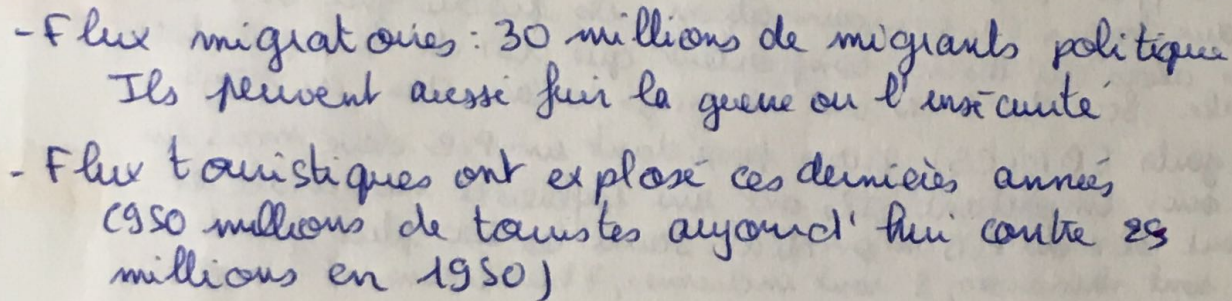 - Flux migratoires : 30 millions de migrants politique
Ils peuvent aussi fuir la guerre ou l'insécurité
- Flux touristiques ont explosé ces dernières années
(950 millions de touristes aujourd'hui contre 25
millions en 1950)